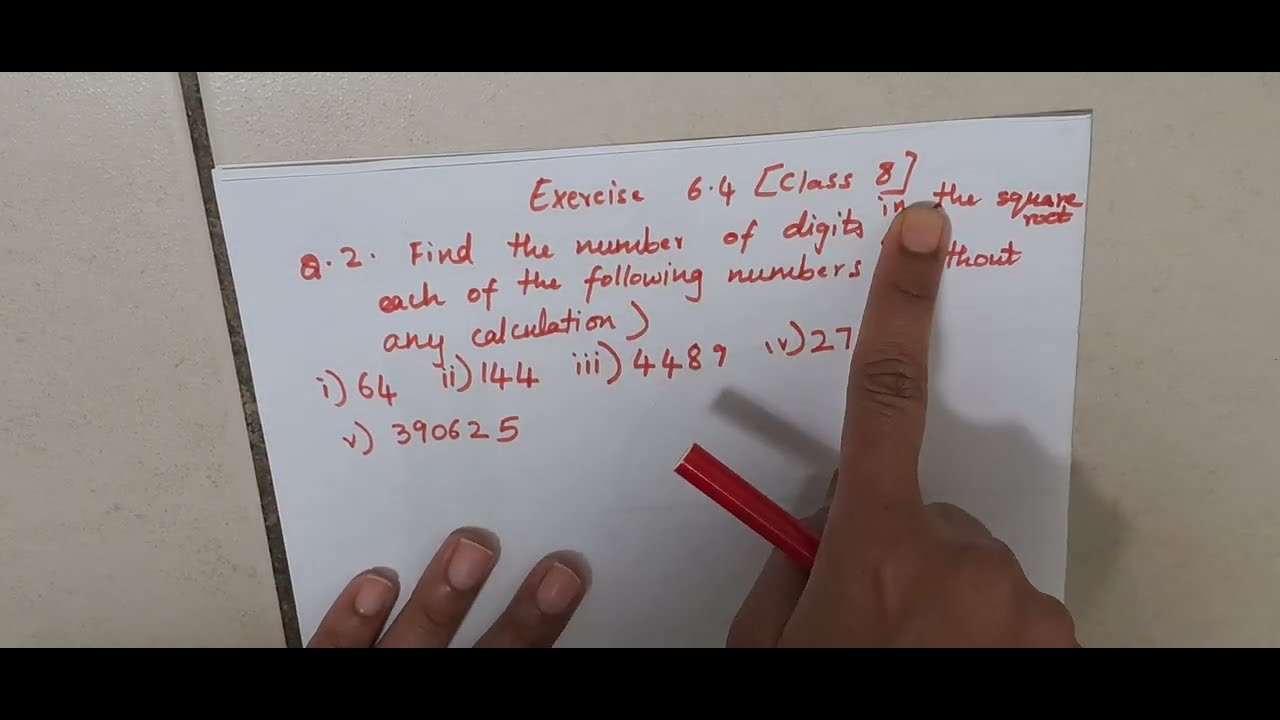 Exercise 6.4 [Class 8]
in the square root
Q.2. Find the number of digits
each of the following numbers
any calculation)
i) 64 ii) 144 iii) 4489 iv) 27
v) 390625